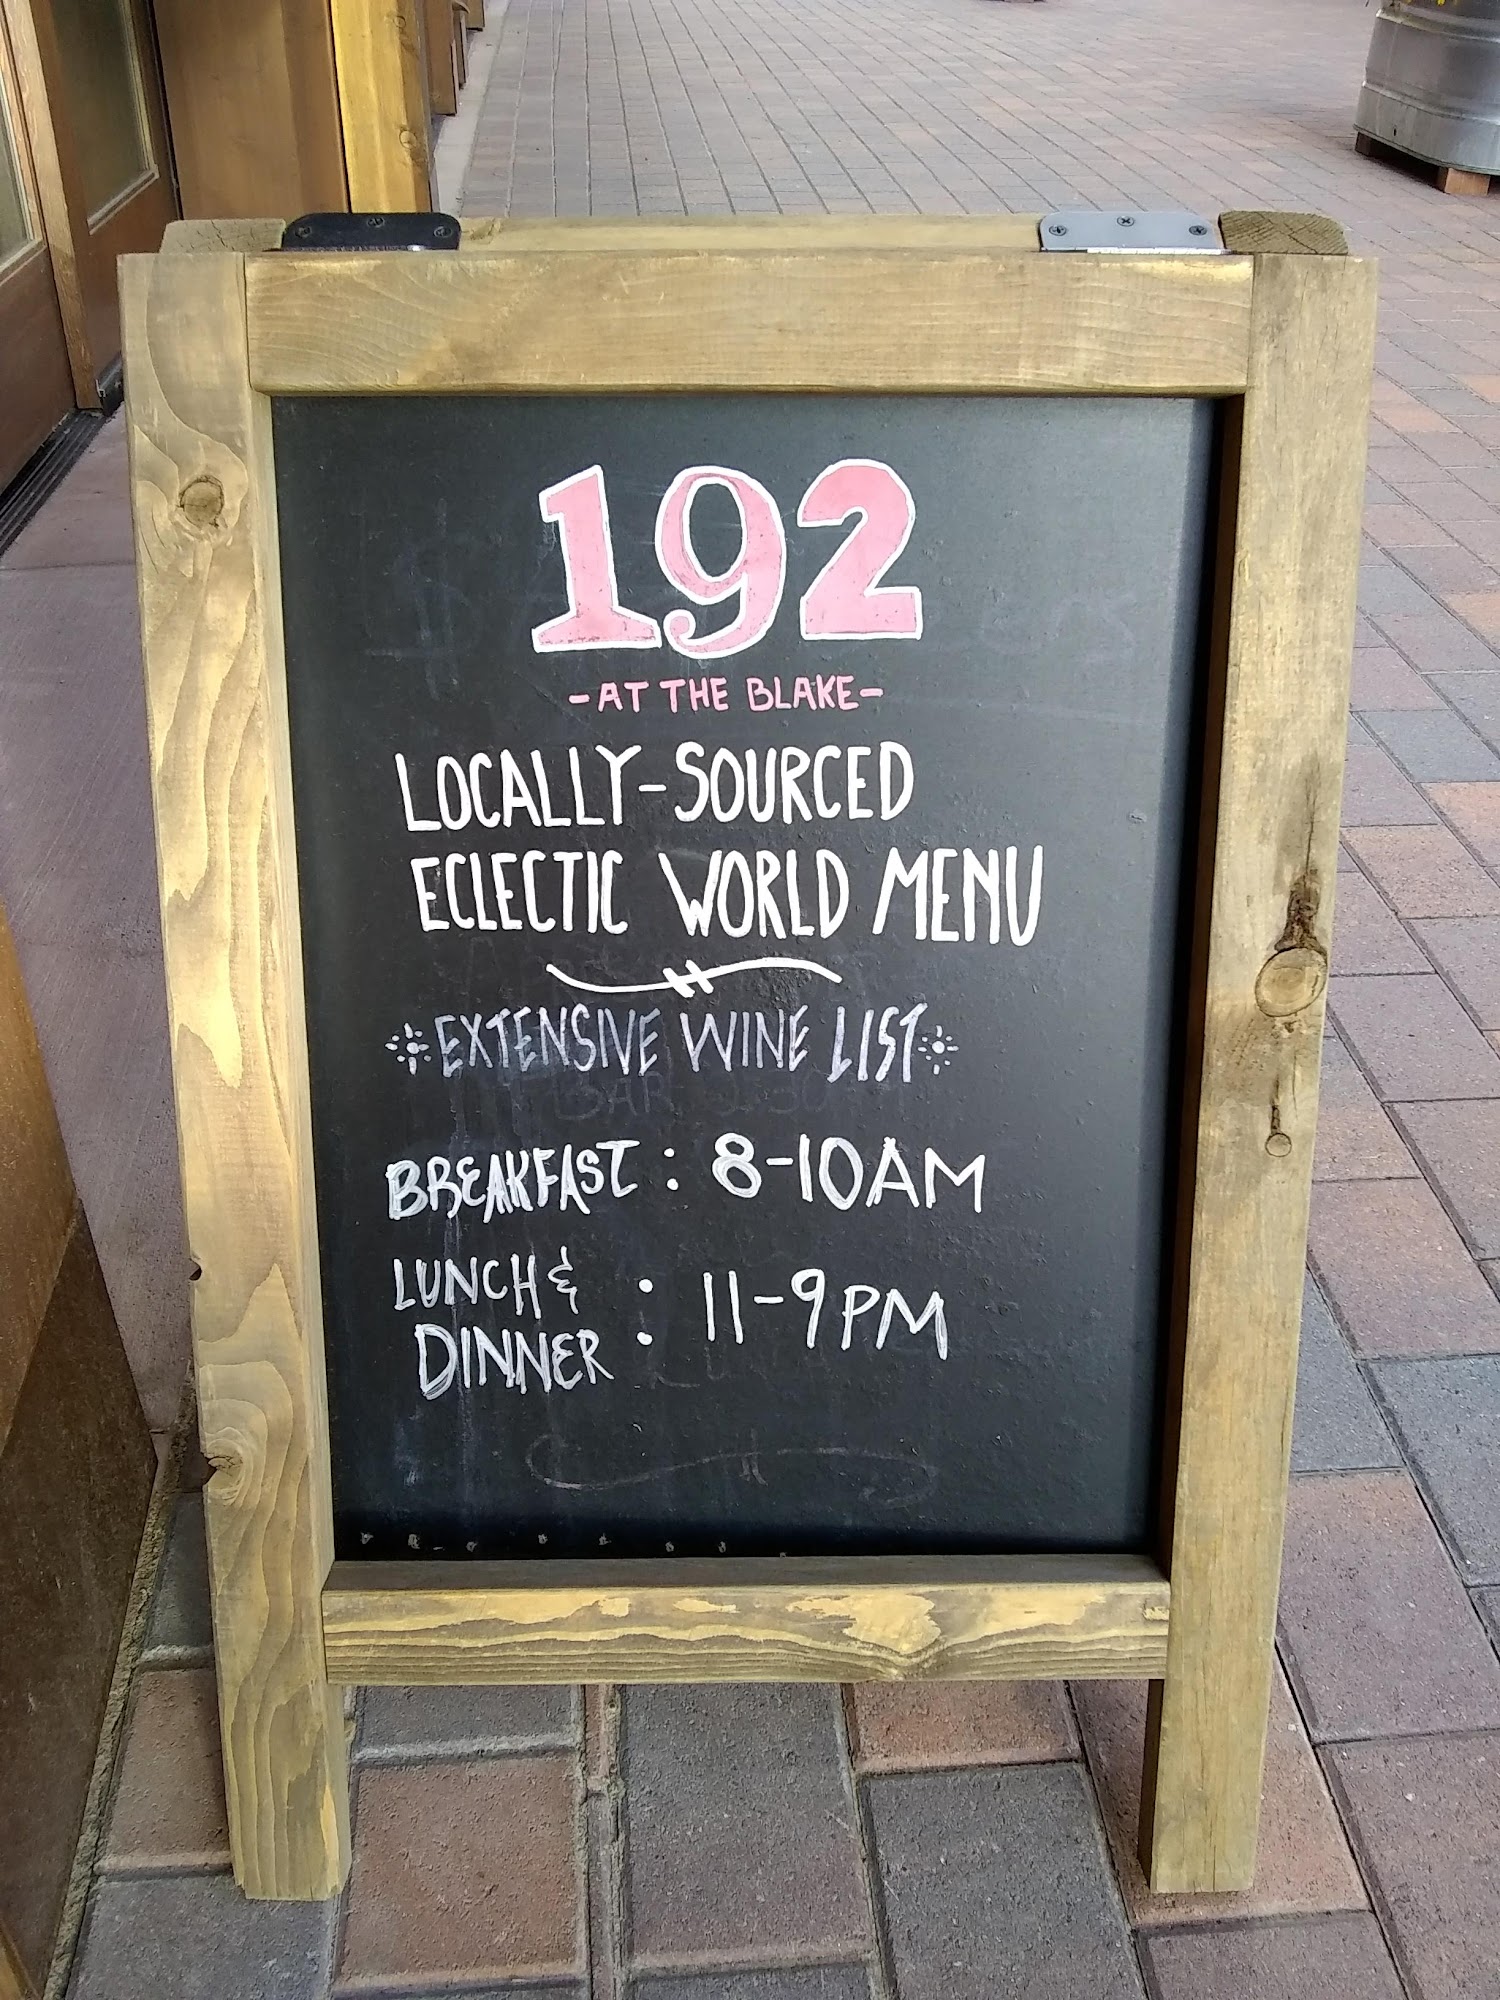 192
-AT THE BLAKE-
LOCALLY-SOURCED
ECLECTIC WORLD MENU
EXTENSIVE WINE LIST
BAR
BREAKFAST : 8-10AM
LUNCH &
DINNER : 11-9PM